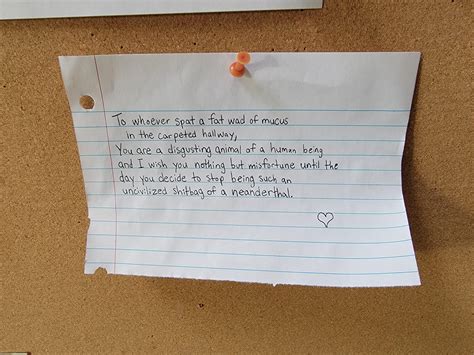 To whoever spat a fat wad of mucus
in the carpeted hallway,
You are a disgusting animal of a human being
and I wish you nothing but misfortune until the
day you decide to stop being such an
uncivilized shitbag of a neanderthal.
♡